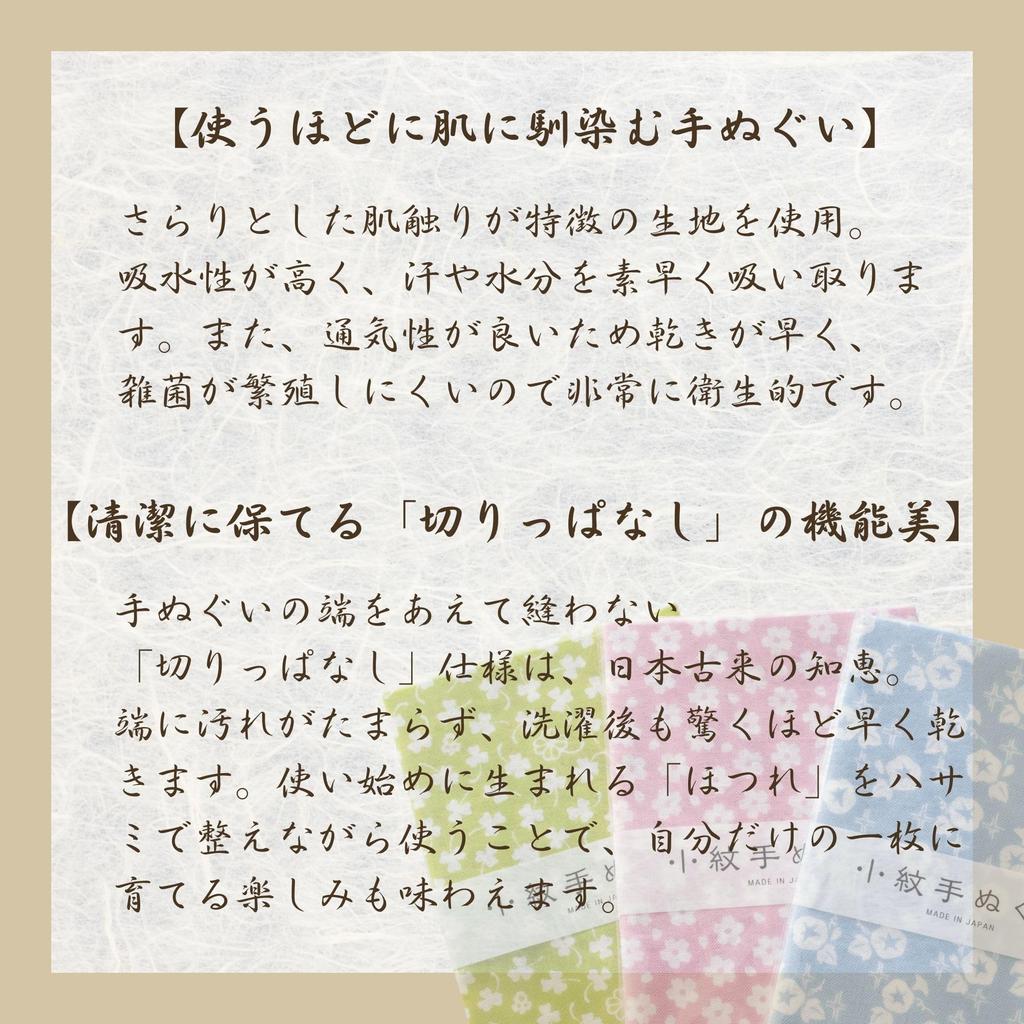 【使うほどに肌に馴染む手ぬぐい】
さらりとした肌触りが特徴の生地を使用。
吸水性が高く、汗や水分を素早く吸い取りま
す。また、通気性が良いため乾きが早く、
雑菌が繁殖しにくいので非常に衛生的です。
【清潔に保てる「切りっぱなし」の機能美】
手ぬぐいの端をあえて縫わない
「切りっぱなし」仕様は、日本古来の知恵。
端に汚れがたまらず、洗濯後も驚くほど早く乾
きます。使い始めに生まれる「ほつれ」をハサ
ミで整えながら使うことで、自分だけの一枚に
育てる楽しみも味わえます。
小紋手ぬ
MADE IN
小紋手ぬ
MADE IN JA
小紋手ぬぐ
MADE IN JAPAN